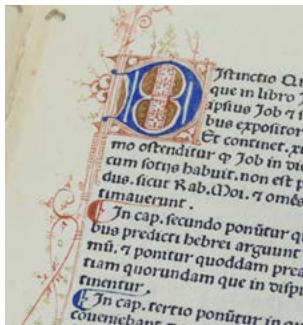 DIstinctio Qu
que in libro
ipsius Job ⁊ i
bus expositor
Et continet .xi
mo ostenditur ꝙ Job in vi
cum sotijs habuit. non est p
dus. sicut Rab. Moi. ⁊ omẽs
timauerunt.
In cap. secundo ponũtur q
bus predicti hebrei arguunt
mũ. ⁊ ponitur quoddam prea
tiam quorundam que in dispu
tinentur.
En cap. tertio ponitur in q
coueniebant